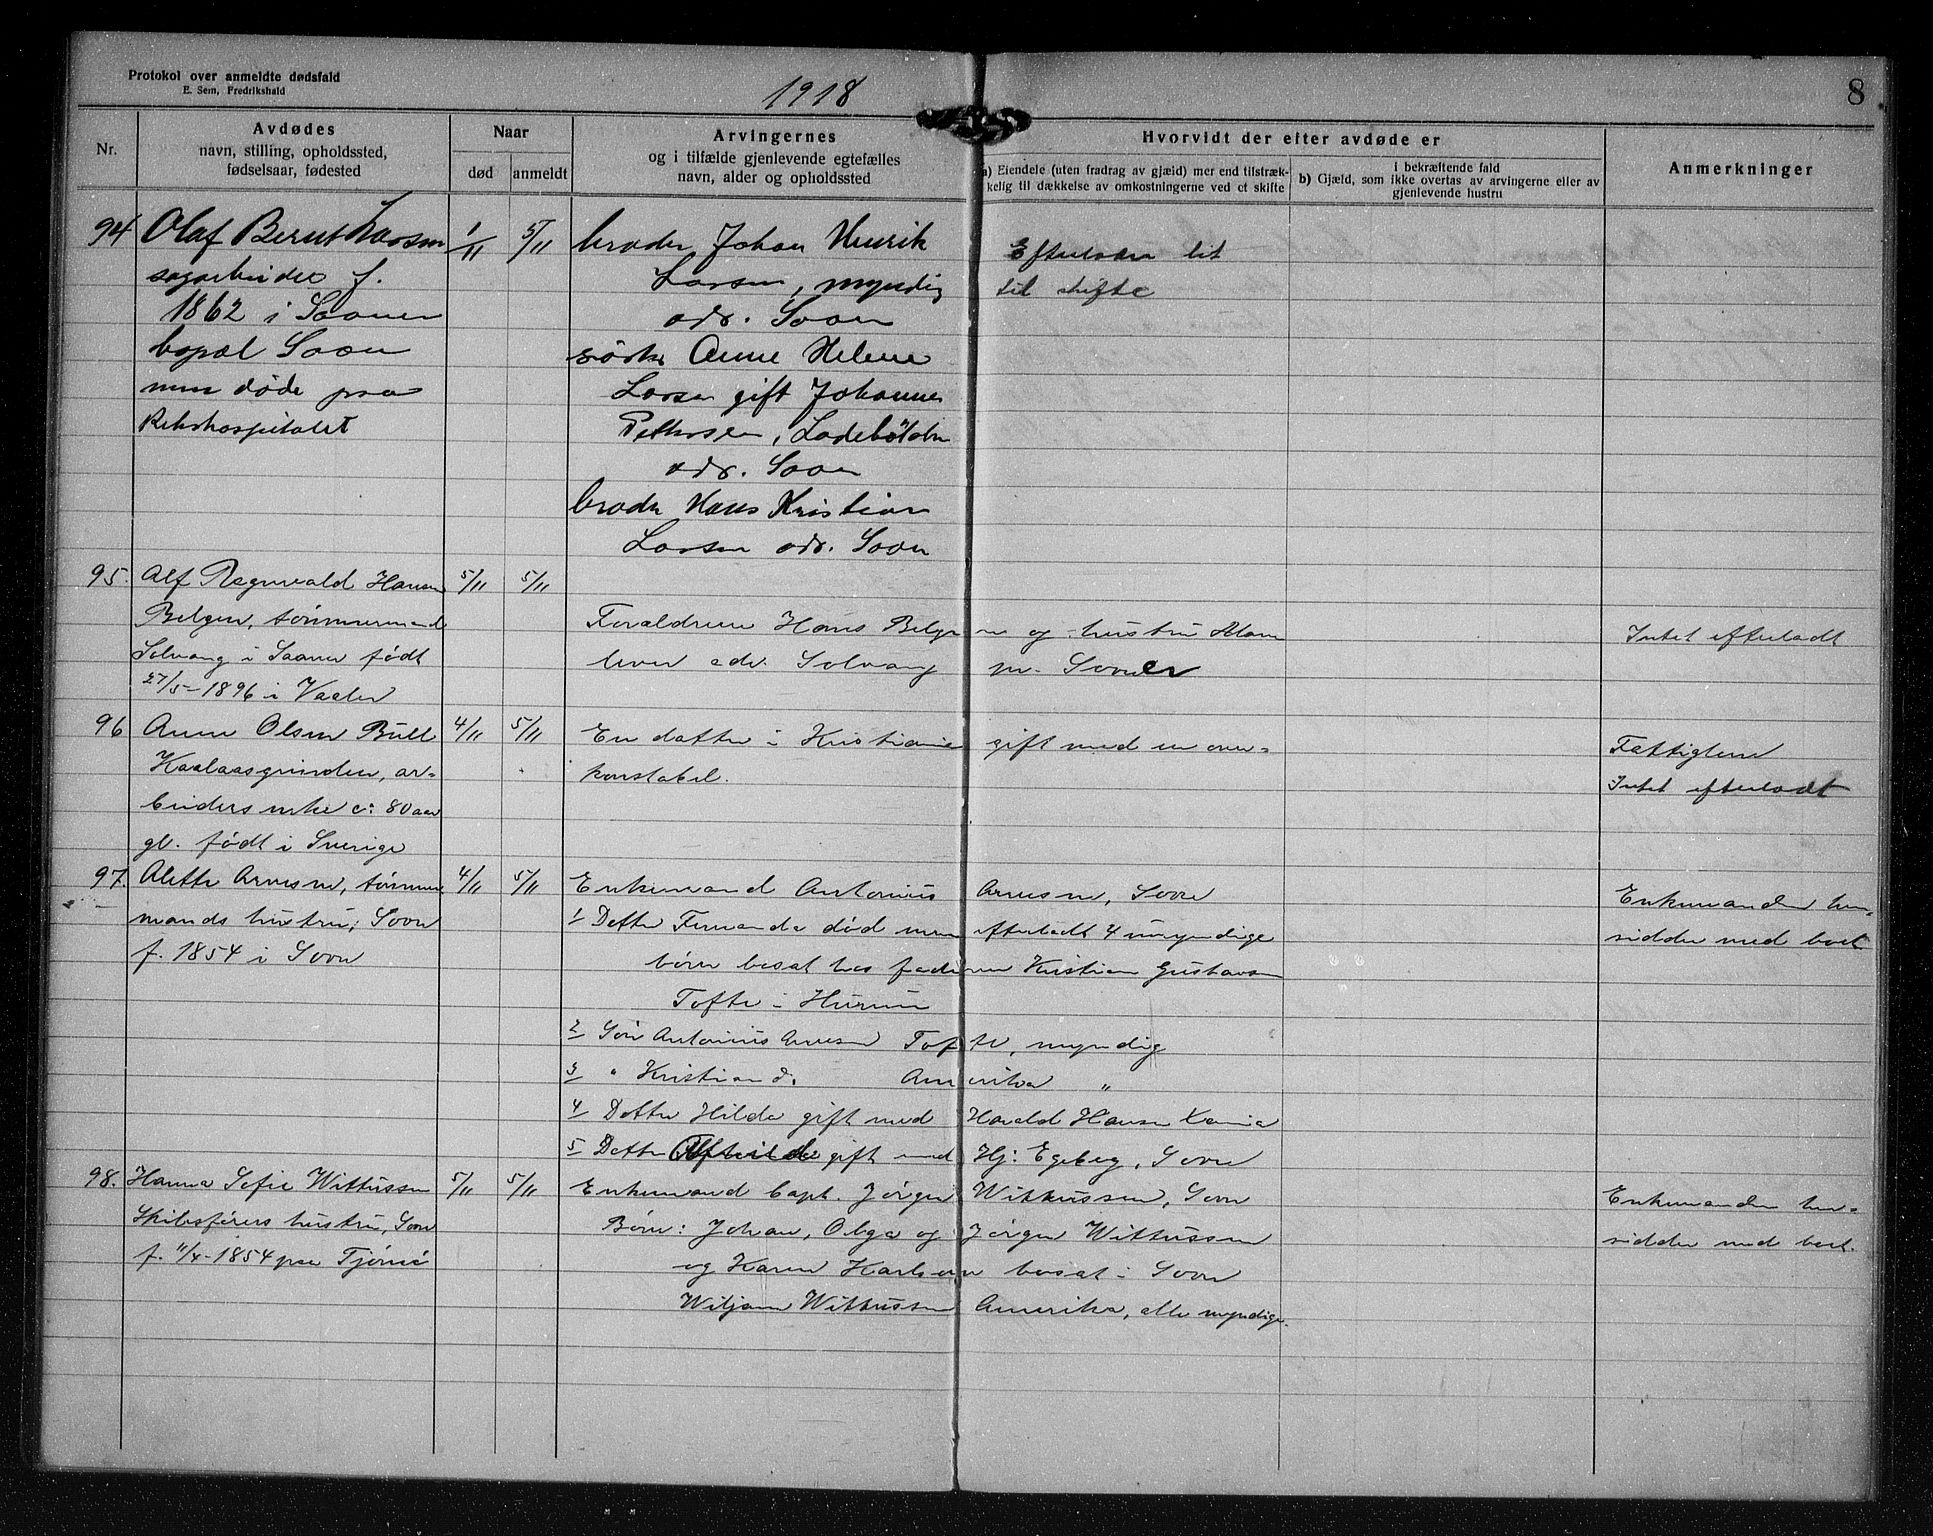 Protokol over anmeldte dødsfald
E. Sem, Fredrikshald
1918
8
Nr.
Avdødes
navn, stilling, opholdssted,
fødselsaar, fødested
Naar
død
anmeldt
Arvingernes
og i tilfælde gjenlevende egtefælles
navn, alder og opholdssted
Hvorvidt der efter avdøde er
a) Eiendele (uten fradrag av gjæld) mer end tilstræk-
kelig til dækkelse av omkostningerne ved et skifte
i bekræftende fald
b) Gjæld, som ikke overtas av arvingerne eller av
gjenlevende hustru
Anmerkninger
94
Olaf Bernt Larsen
sagarbeider f.
1862 i Saaner
bopæl Soon
men døde paa
Rikshospitalet
1/11
5/11
broder Johan Henrik
Larsen, myndig
adr. Soon
søster Anne Helene
Larsen gift Johannes
Pettersen,
adr. Soon
broder Hans Kristian
Larsen adr. Soon
Efterlader lit
til skifte
95.
Alf Ragnvald Hansen
Belgen, tømmermand
Solvang i Saaner født
27/5-1896 i Vaaler
5/11
5/11
Forældrene Hans Belgen og hustru
lever adr. Solvang pr. Sooner
Intet efterladt
96
Anne Olsen Bull
Kaalaasgrinden, ar-
beiders enke ca: 80 aar
gl. født i Sverige
4/11
5/11
En datter i Kristiania gift med en over-
konstabel.
Fattiglem
Intet efterladt
97.
Alette Arnesen, tømmer
mands hustru, Soon
f. 1854 i Soon
4/11
5/11
Enkemand Antonius Arnesen, Soon
1 Datter Fernanda død men efterladt 4 umyndige
børn bosat hos faderen Kristian Gustavsen
Tofte i Hurum
2 Søn Antonius Arnesen Tofte, myndig
3 " Kristian d. Amerika "
4 Datter Hilda gift med Harald Hansen Xania
5 Datter gift med Hj. Egeberg, Soon
Enkemanden hen-
sidder med boet
98.
Hanna Sofie Wittussen
Skibsførers hustru, Soon
f. 11/4-1854 paa Tjømø
5/11
5/11
Enkemand Capt. Jørgen Wittussen, Soon
Børn: Johan, Olga og Jørgen Wittussen
og Karen Karlsen bosat i Soon
Wiljam Wittussen Amerika, alle myndige.
Enkemanden hen-
sidder med boet.